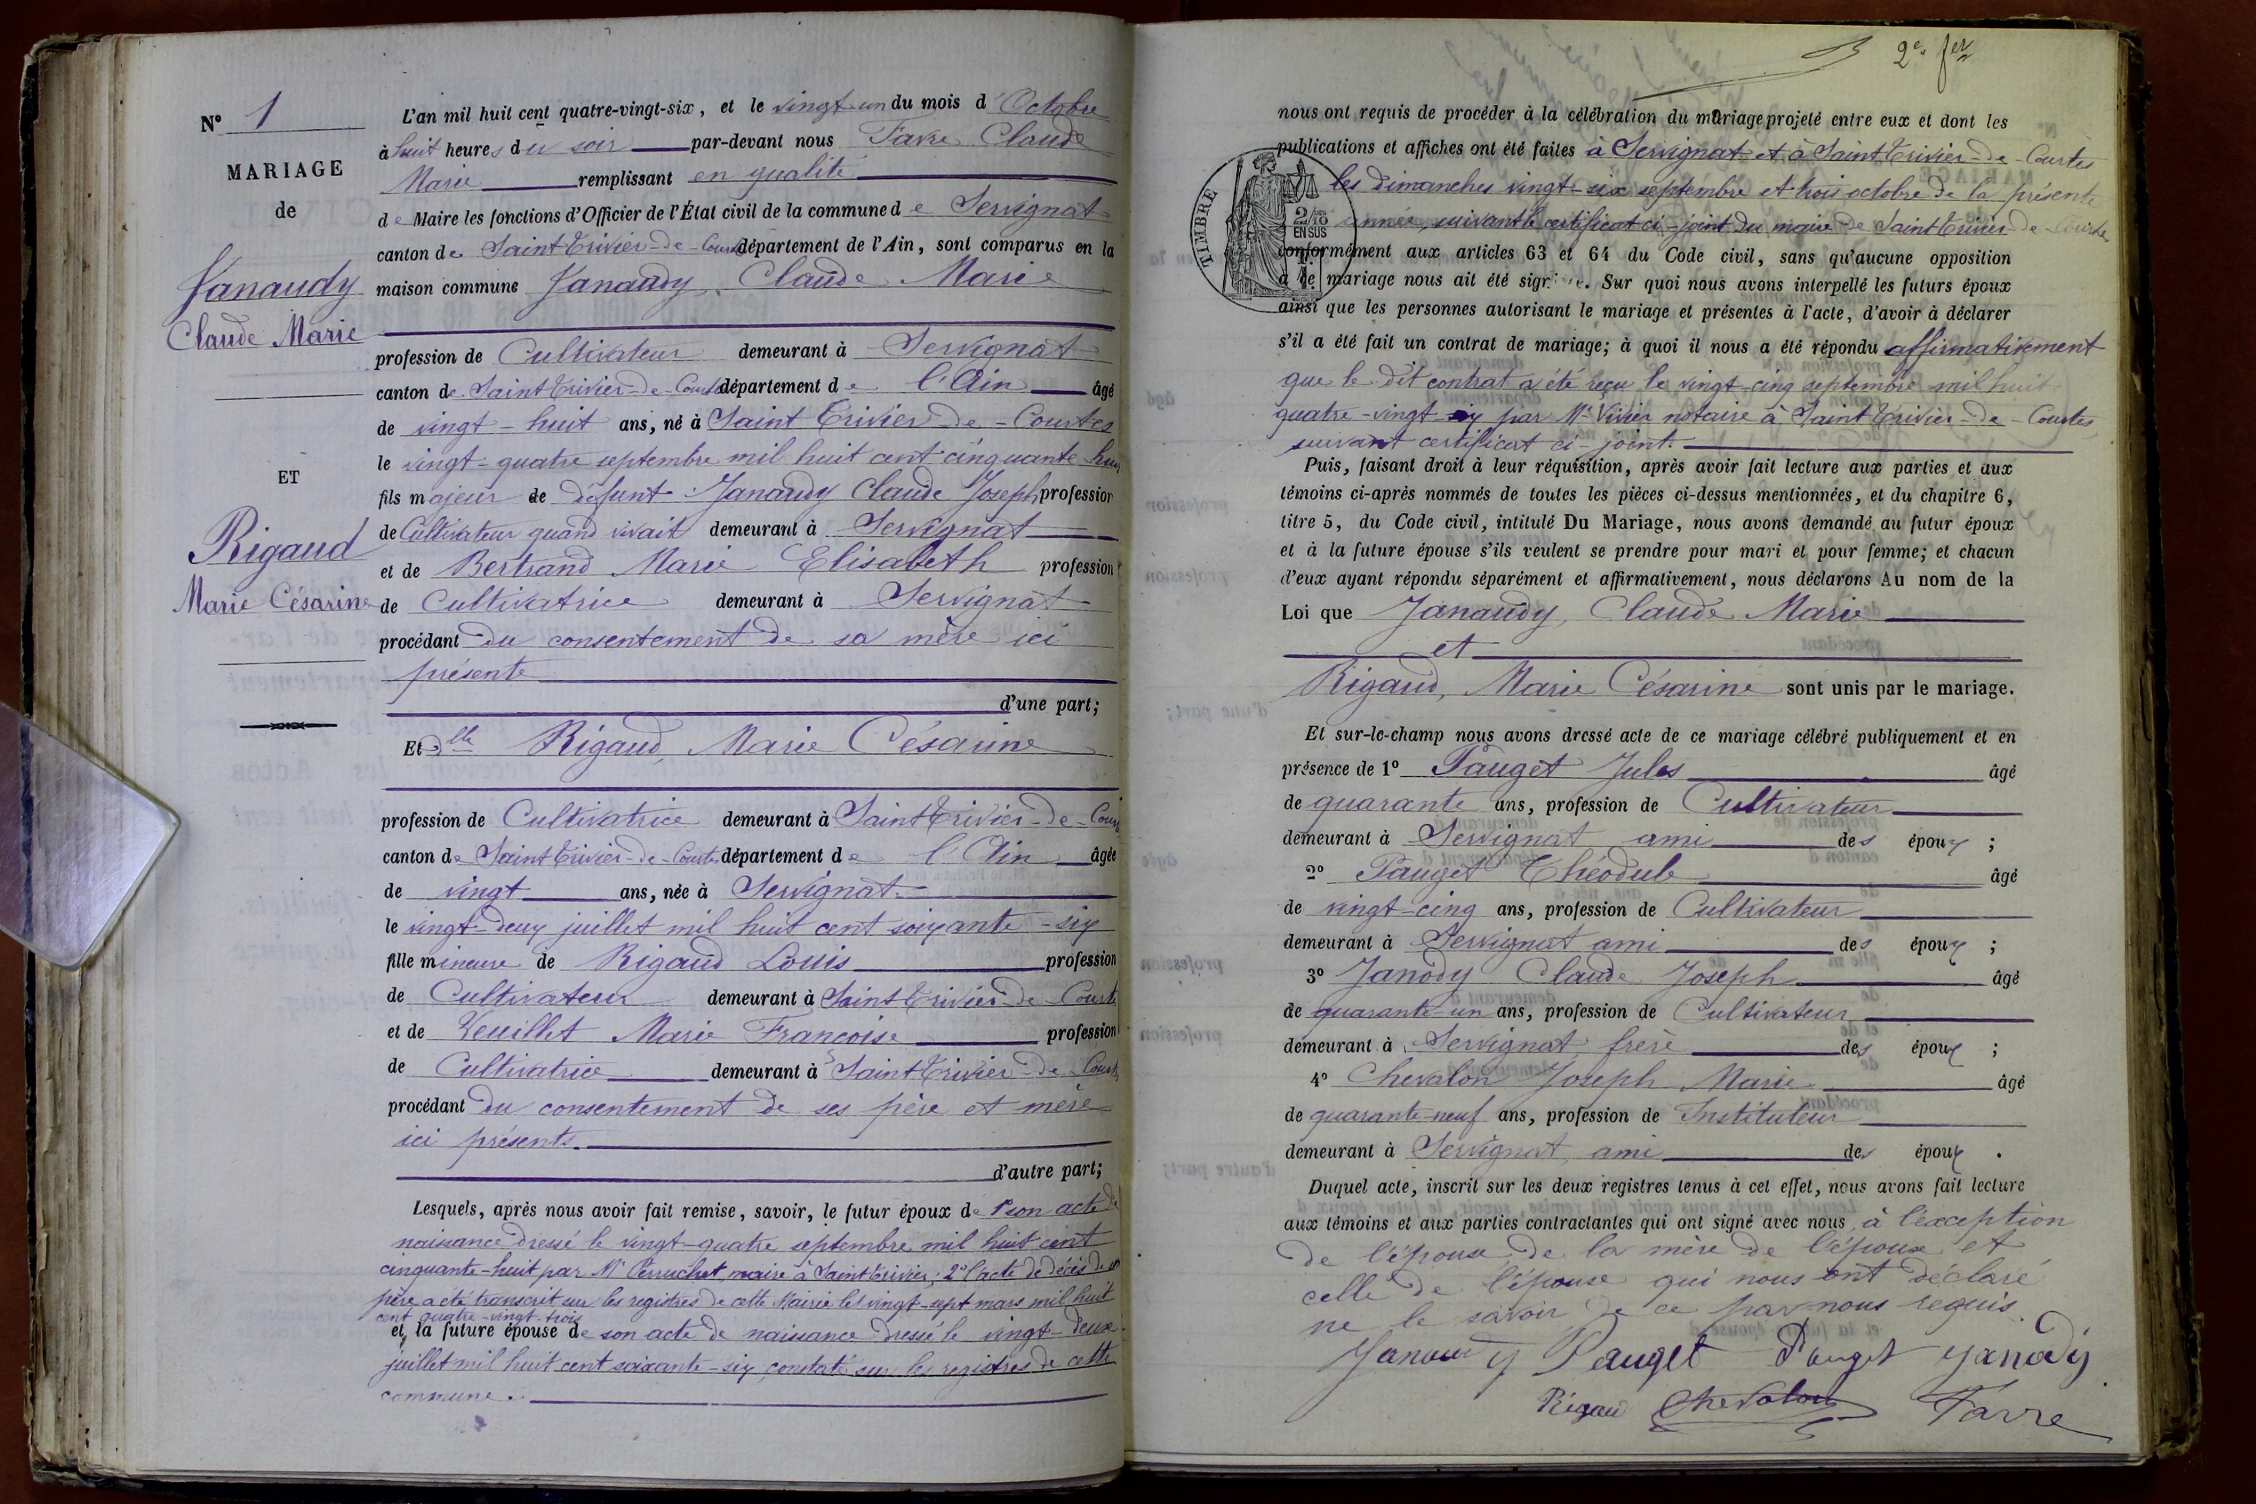 N° 1
MARIAGE
de
Janaudy
Claude Marie
ET
Rigaud
Marie Césarine
L'an mil huit cent quatre-vingt-six, et le vingt-un du mois d'Octobre
à huit heures du soir par-devant nous Favre Claude
Marie remplissant en qualité
de Maire les fonctions d'Officier de l'État civil de la commune de Servignat
canton de Saint Trivier-de-Courtes département de l'Ain, sont comparus en la
maison commune Janaudy, Claude Marie
profession de Cultivateur demeurant à Servignat
canton de Saint Trivier-de-Courtes département de l'Ain âgé
de vingt-huit ans, né à Saint Trivier-de-Courtes
le vingt-quatre septembre mil huit cent cinquante-huit
fils majeur de défunt Janaudy Claude Joseph profession
de Cultivateur quand vivait demeurant à Servignat
et de Bertrand Marie Elisabeth profession
de Cultivatrice demeurant à Servignat
procédant du consentement de sa mère ici
présente
d'une part;
Et Dlle Rigaud, Marie Césarine
profession de Cultivatrice demeurant à Saint Trivier-de-Cour
canton de Saint Trivier-de-Courtes département de l'Ain âgée
de vingt ans, née à Servignat
le vingt-deux juillet mil huit cent soixante-six
fille mineure de Rigaud Louis profession
de Cultivateur demeurant à Saint Trivier-de-Courte
et de Veuillet Marie Françoise profession
de Cultivatrice demeurant à Saint Trivier-de-Court
procédant du consentement de ses père et mère
ici présents.
d'autre part;
Lesquels, après nous avoir fait remise, savoir, le futur époux de 1° son acte de
naissance dressé le vingt-quatre septembre mil huit cent
cinquante-huit par Mr Perruchet, maire à Saint Trivier; 2° l'acte de décès de son
père a été transcrit sur les registres de cette Mairie le vingt-sept mars mil huit
cent quatre-vingt-trois
et, la future épouse de son acte de naissance dressé le vingt-deux
juillet mil huit cent soixante-six, constaté sur les registres de cette
commune.
2e fer
nous ont requis de procéder à la célébration du mariage projeté entre eux et dont les
publications et affiches ont été faites à Servignat et à Saint Trivier-de-Courtes
les Dimanches vingt-six septembre et trois octobre de la présente
année, suivant le certificat ci-joint du maire de Saint Trivier-de-Courtes
TIMBRE
2/10
EN SUS
conformément aux articles 63 et 64 du Code civil, sans qu'aucune opposition
à ce mariage nous ait été signifiée. Sur quoi nous avons interpellé les futurs époux
ainsi que les personnes autorisant le mariage et présentes à l'acte, d'avoir à déclarer
s'il a été fait un contrat de mariage; à quoi il nous a été répondu affirmativement
que le dit contrat a été reçu le vingt-cinq septembre mil huit
quatre-vingt-six par Me Vivier notaire à Saint Trivier-de-Courtes
suivant certificat ci-joint.
Puis, faisant droit à leur réquisition, après avoir fait lecture aux parties et aux
témoins ci-après nommés de toutes les pièces ci-dessus mentionnées, et du chapitre 6,
titre 5, du Code civil, intitulé Du Mariage, nous avons demandé au futur époux
et à la future épouse s'ils veulent se prendre pour mari et pour femme; et chacun
d'eux ayant répondu séparément et affirmativement, nous déclarons Au nom de la
Loi que Janaudy, Claude Marie
et
Rigaud, Marie Césarine sont unis par le mariage.
Et sur-le-champ nous avons dressé acte de ce mariage célébré publiquement et en
présence de 1° Pauget Jules âgé
de quarante ans, profession de Cultivateur
demeurant à Servignat ami des époux ;
2° Pauget Théodule âgé
de vingt-cinq ans, profession de Cultivateur
demeurant à Servignat ami des époux ;
3° Janody Claude Joseph âgé
de quarante-un ans, profession de Cultivateur
demeurant à Servignat frère des époux ;
4° Chevalon Joseph Marie âgé
de quarante-neuf ans, profession de Instituteur
demeurant à Servignat, ami des époux .
Duquel acte, inscrit sur les deux registres tenus à cet effet, nous avons fait lecture
aux témoins et aux parties contractantes qui ont signé avec nous, à l'exception
de l'épouse, de la mère de l'époux et
celle de l'épouse qui nous ont déclaré
ne le savoir de ce par nous requis.
Janaudy Pauget Pauget Janody
Rigaud Chevalon Favre